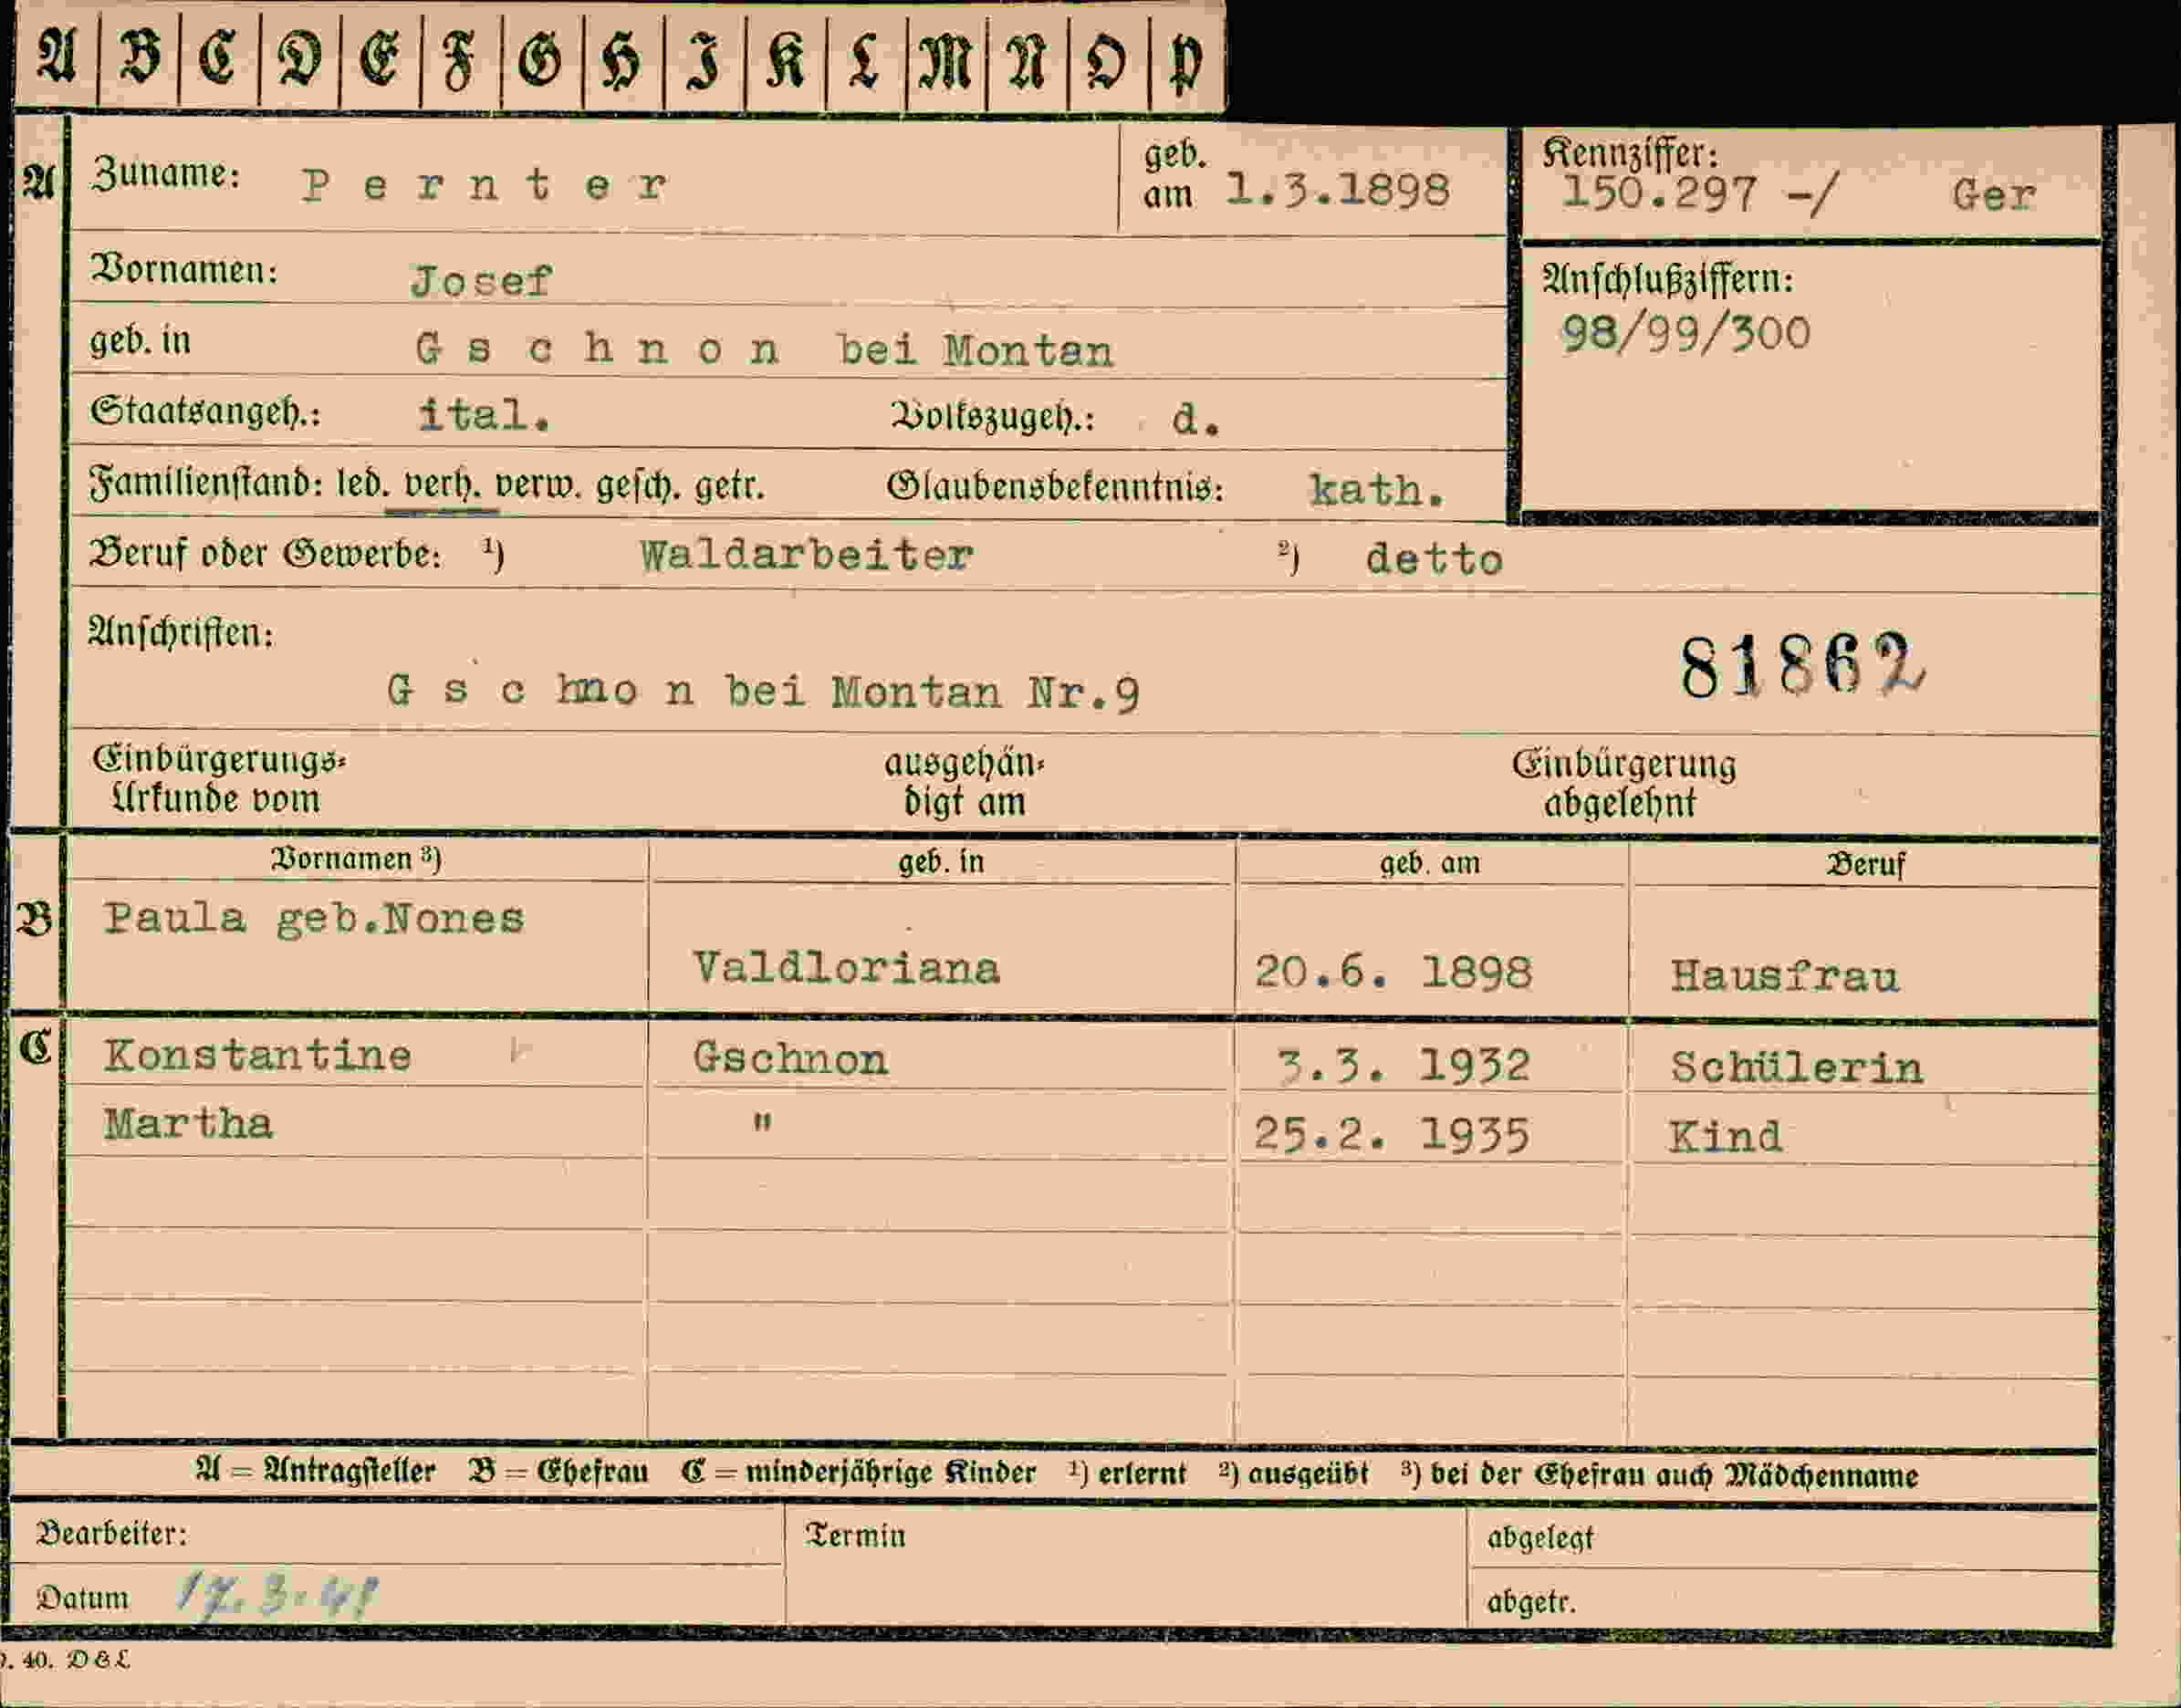 A B C D E F G H I K L M N O P
A Zuname: Pernter geb. am 1.3.1898
Kennziffer: 150.297 -/ Ger
Vornamen: Josef
Anschlußziffern:
98/99/300
geb. in Gschnon bei Montan
Staatsangeh.: ital. Volkszugeh.: d.
Familienstand: led. verh. verw. gesch. getr. Glaubensbekenntnis: kath.
Beruf oder Gewerbe: ¹) Waldarbeiter ²) detto
Anschriften:
Gschnon bei Montan Nr.9
81862
Einbürgerungs= ausgehän= Einbürgerung
Urkunde vom digt am abgelehnt
Vornamen ³) geb. in geb. am Beruf
B Paula geb.Nones
Valdloriana 20.6. 1898 Hausfrau
C Konstantine Gschnon 3.3. 1932 Schülerin
Martha " 25.2. 1935 Kind
A = Antragsteller B = Ehefrau C = minderjährige Kinder ¹) erlernt ²) ausgeübt ³) bei der Ehefrau auch Mädchenname
Bearbeiter: Termin abgelegt
Datum 17.3.41 abgetr.
40. D & L